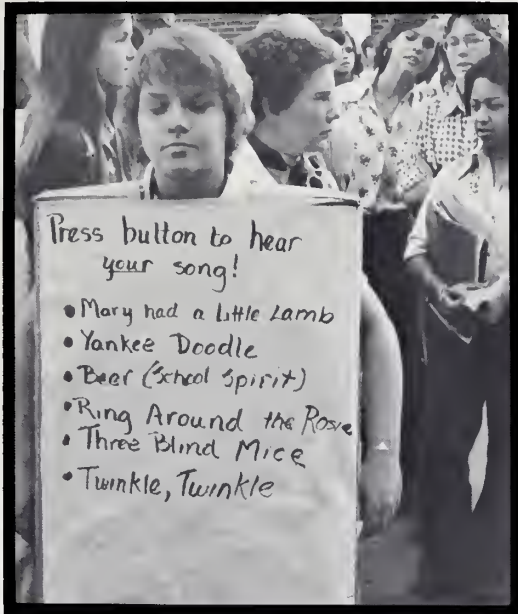 Press button to hear
your song!
• Mary had a Little Lamb
• Yankee Doodle
• Bear (School Spirit)
• Ring Around the Rosie
• Three Blind Mice
• Twinkle, Twinkle